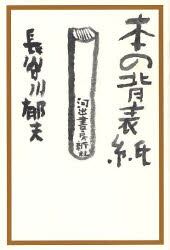 本の背表紙
長谷川郁夫
河出書房新社